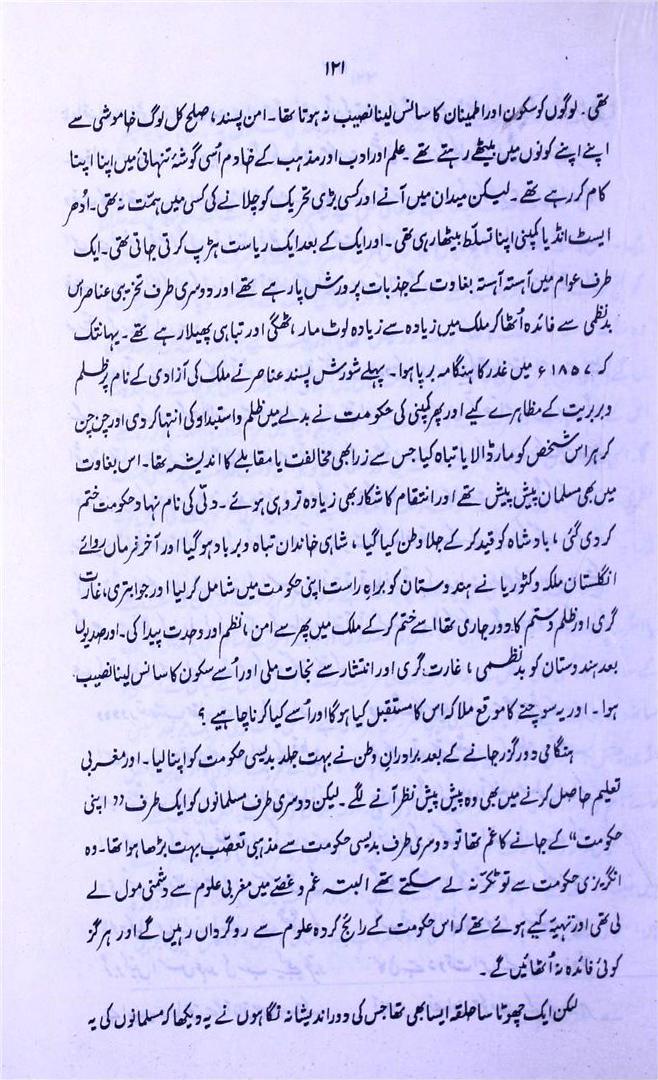 ۱۲۱
تھی۔ لوگوں کو سکون اور اطمینان کا سانس لینا نصیب نہ ہوتا تھا۔ امن پسند، صلح کل لوگ خاموشی سے
اپنے اپنے کونوں میں بیٹھے رہتے تھے۔ علم اور ادب اور مذہب کے خادم اُسی گوشۂ تنہائی میں اپنا اپنا
کام کر رہے تھے۔ لیکن میدان میں آنے اور کسی بڑی تحریک کو چلانے کی کسی میں ہمّت نہ تھی۔ اُدھر
ایسٹ انڈیا کمپنی اپنا تسلّط بیٹھا رہی تھی۔ اور ایک کے بعد ایک ریاست ہڑپ کرتی جاتی تھی۔ ایک
طرف عوام میں آہستہ آہستہ بغاوت کے جذبات پرورش پا رہے تھے اور دوسری طرف تخریبی عناصر اس
بدنظمی سے فائدہ اُٹھا کر ملک میں زیادہ سے زیادہ لوٹ مار، ٹھگی اور تباہی پھیلا رہے تھے۔ یہانتک
کہ ۱۸۵۷ء میں غدر کا ہنگامہ برپا ہوا۔ پہلے شورش پسند عناصر نے ملک کی آزادی کے نام پر ظلم
و بربریت کے مظاہرے کیے اور پھر کمپنی کی حکومت نے بدلے میں ظلم و استبداد کی انتہا کر دی اور چن چن
کر ہر اس شخص کو مار ڈالا یا تباہ کیا جس سے ذرا بھی مخالفت یا مقابلے کا اندیشہ تھا۔ اس بغاوت
میں بھی مسلمان پیش پیش تھے اور انتقام کا شکار بھی زیادہ تر وہی ہوئے۔ دلّی کی نام نہاد حکومت ختم
کر دی گئی، بادشاہ کو قید کر کے جلا وطن کیا گیا، شاہی خاندان تباہ و برباد ہو گیا اور آخر فرماں روائے
انگلستان ملکہ وکٹوریا نے ہندوستان کو براہِ راست اپنی حکومت میں شامل کر لیا اور جو ابتری، غارت
گری اور ظلم و ستم کا دور جاری تھا اسے ختم کر کے ملک میں پھر سے امن، نظم اور وحدت پیدا کی۔ اور صدیوں
بعد ہندوستان کو بدنظمی، غارت گری اور انتشار سے نجات ملی اور اُسے سکون کا سانس لینا نصیب
ہوا۔ اور یہ سوچنے کا موقع ملا کہ اس کا مستقبل کیا ہو گا اور اُسے کیا کرنا چاہیے؟
ہنگامی دور گزر جانے کے بعد برادرانِ وطن نے بہت جلد بدیسی حکومت کو اپنا لیا۔ اور مغربی
تعلیم حاصل کرنے میں بھی وہ پیش پیش نظر آنے لگے۔ لیکن دوسری طرف مسلمانوں کو ایک طرف ”اپنی
حکومت“ کے جانے کا غم تھا تو دوسری طرف بدیسی حکومت سے مذہبی تعصّب بہت بڑھا ہوا تھا۔ وہ
انگریزی حکومت سے تو ٹکّر نہ لے سکتے تھے البتہ غم و غصّے میں مغربی علوم سے دشمنی مول لے
لی تھی اور تہیّہ کیے ہوئے تھے کہ اس حکومت کے رائج کردہ علوم سے روگرداں رہیں گے اور ہرگز
کوئی فائدہ نہ اُٹھائیں گے۔
لیکن ایک چھوٹا سا حلقہ ایسا بھی تھا جس کی دور اندیشانہ نگاہوں نے یہ دیکھا کہ مسلمانوں کی یہ